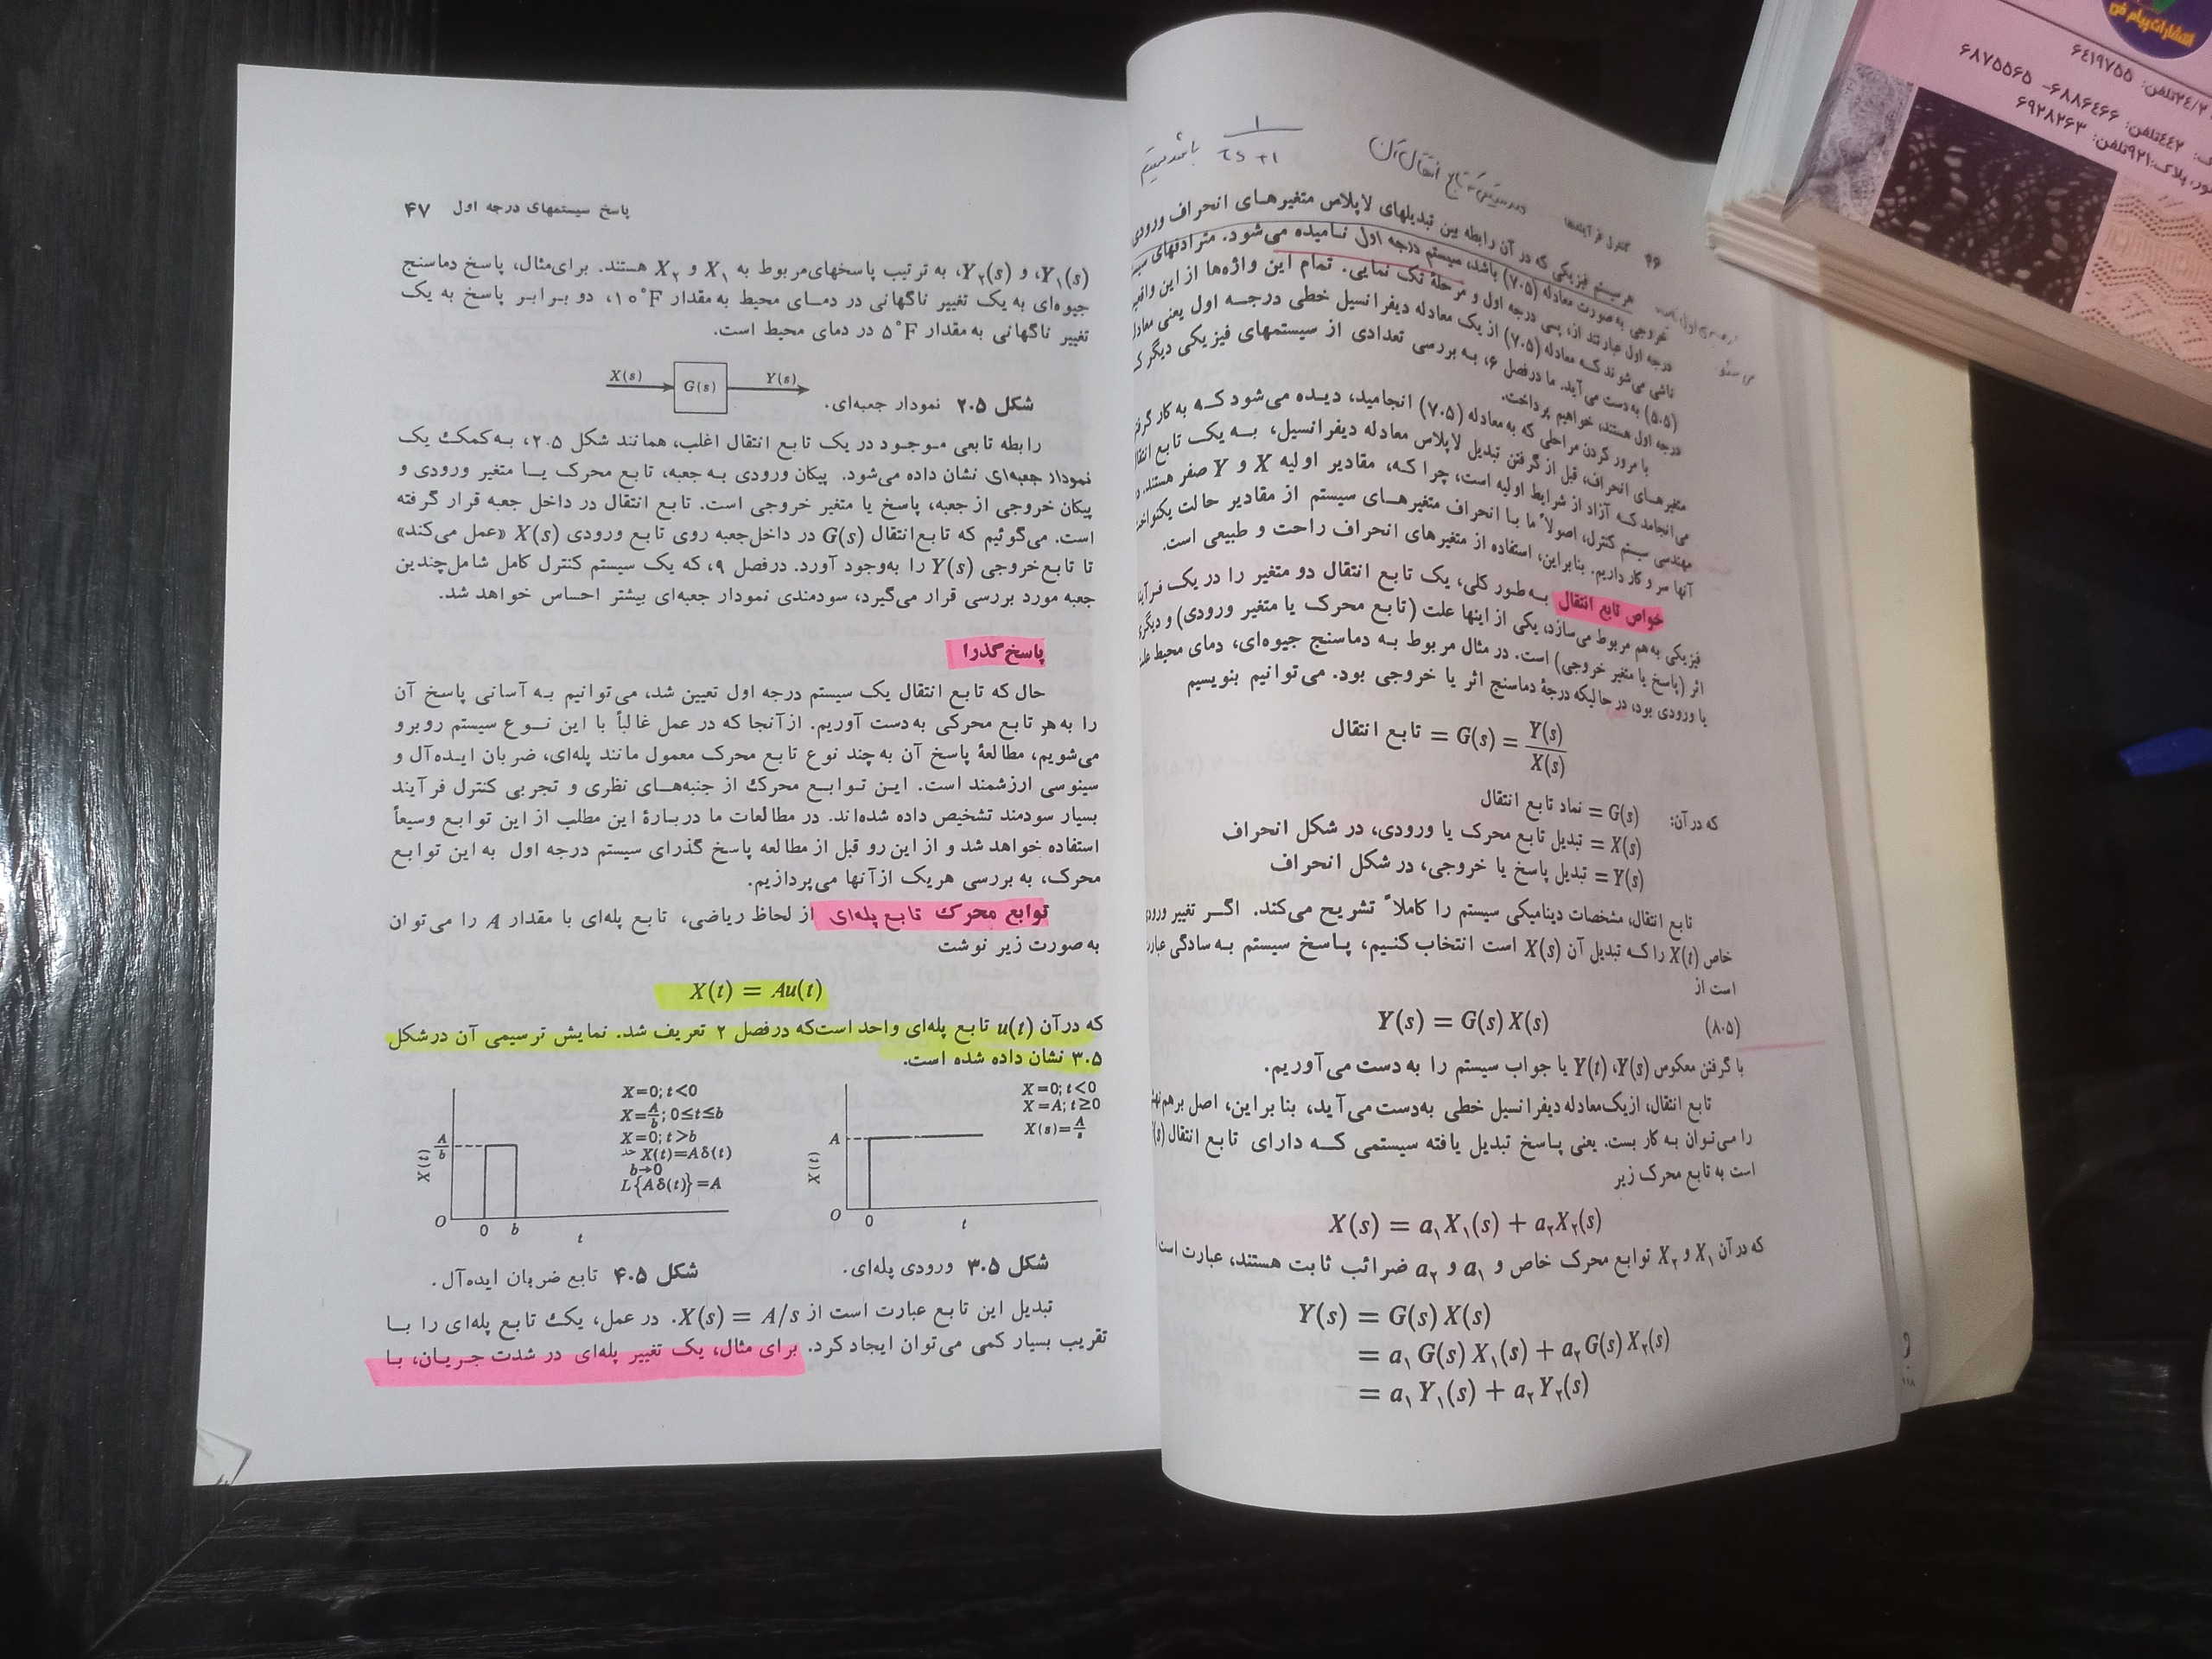 ۴۶ کنترل فرآیندها
در سیستمی که تابع انتقال آن
۱
τs +۱
باشد سیستم
هر سیستم فیزیکی که در آن رابطه بین تبدیلهای لاپلاس متغیرهای انحراف ورودی
خروجی به صورت معادله (۷.۵) باشد، سیستم درجه اول نامیده می‌شود. مترادفهای
درجه اول عبارتند از، پسی درجه اول و مرحلهٔ تک نمایی. تمام این واژه‌ها از این
ناشی می‌شوند که معادله (۷.۵) از یک معادله دیفرانسیل خطی درجه اول یعنی
(۵.۵) به دست می‌آید. ما در فصل ۶، به بررسی تعدادی از سیستمهای فیزیکی دیگر
درجه اول هستند، خواهیم پرداخت.
با مرور کردن مراحلی که به معادله (۷.۵) انجامید، دیده می‌شود که به کار
متغیرهای انحراف، قبل از گرفتن تبدیل لاپلاس معادله دیفرانسیل، به یک تابع
می‌انجامد که آزاد از شرایط اولیه است، چرا که، مقادیر اولیه X و Y صفر هستند.
مهندسی سیستم کنترل، اصولاً ما با انحراف متغیرهای سیستم از مقادیر حالت
آنها سر و کار داریم. بنابراین، استفاده از متغیرهای انحراف راحت و طبیعی است.
خواص تابع انتقال به طور کلی، یک تابع انتقال دو متغیر را در یک
فیزیکی به هم مربوط می‌سازد، یکی از اینها علت (تابع محرک یا متغیر ورودی) و
اثر (پاسخ یا متغیر خروجی) است. در مثال مربوط به دماسنج جیوه‌ای، دمای محیط
یا ورودی بود، در حالیکه درجهٔ دماسنج اثر یا خروجی بود. می‌توانیم بنویسیم
تابع انتقال = G(s) = Y(s)/X(s)
که در آن: G(s) = نماد تابع انتقال
X(s) = تبدیل تابع محرک یا ورودی، در شکل انحراف
Y(s) = تبدیل پاسخ یا خروجی، در شکل انحراف
تابع انتقال، مشخصات دینامیکی سیستم را کاملاً تشریح می‌کند. اگر تغییر
خاص X(t) را که تبدیل آن X(s) است انتخاب کنیم، پاسخ سیستم به سادگی
است از
(۸.۵) Y(s) = G(s) X(s)
با گرفتن معکوس Y(s)، Y(t) یا جواب سیستم را به دست می‌آوریم.
تابع انتقال، از یک معادله دیفرانسیل خطی به‌دست می‌آید، بنابراین، اصل
را می‌توان به کار بست. یعنی پاسخ تبدیل یافته سیستمی که دارای تابع انتقال
است به تابع محرک زیر
X(s) = a۱X۱(s) + a۲X۲(s)
که در آن X۱ و X۲ توابع محرک خاص و a۱ و a۲ ضرائب ثابت هستند، عبارت است
Y(s) = G(s) X(s)
= a۱ G(s) X۱(s) + a۲ G(s) X۲(s)
= a۱ Y۱(s) + a۲ Y۲(s)
پاسخ سیستمهای درجه اول ۴۷
Y۱(s)، و Y۲(s)، به ترتیب پاسخهای مربوط به X۱ و X۲ هستند. برای مثال، پاسخ دماسنج
جیوه‌ای به یک تغییر ناگهانی در دمای محیط به مقدار ۱۰°F، دو برابر پاسخ به یک
تغییر ناگهانی به مقدار ۵°F در دمای محیط است.
X(s) G(s) Y(s)
شکل ۲.۵ نمودار جعبه‌ای.
رابطه تابعی موجود در یک تابع انتقال اغلب، همانند شکل ۲.۵، به کمک یک
نمودار جعبه‌ای نشان داده می‌شود. پیکان ورودی به جعبه، تابع محرک یا متغیر ورودی و
پیکان خروجی از جعبه، پاسخ یا متغیر خروجی است. تابع انتقال در داخل جعبه قرار گرفته
است. می‌گوئیم که تابع انتقال G(s) در داخل جعبه روی تابع ورودی X(s) «عمل می‌کند»
تا تابع خروجی Y(s) را به‌وجود آورد. در فصل ۹، که یک سیستم کنترل کامل شامل چندین
جعبه مورد بررسی قرار می‌گیرد، سودمندی نمودار جعبه‌ای بیشتر احساس خواهد شد.
پاسخ گذرا
حال که تابع انتقال یک سیستم درجه اول تعیین شد، می‌توانیم به آسانی پاسخ آن
را به هر تابع محرکی به دست آوریم. از آنجا که در عمل غالباً با این نوع سیستم روبرو
می‌شویم، مطالعهٔ پاسخ آن به چند نوع تابع محرک معمول مانند پله‌ای، ضربان ایده‌آل و
سینوسی ارزشمند است. این توابع محرک از جنبه‌های نظری و تجربی کنترل فرآیند
بسیار سودمند تشخیص داده شده‌اند. در مطالعات ما دربارهٔ این مطلب از این توابع وسیعاً
استفاده خواهد شد و از این رو قبل از مطالعه پاسخ گذرای سیستم درجه اول به این توابع
محرک، به بررسی هریک از آنها می‌پردازیم.
توابع محرک تابع پله‌ای از لحاظ ریاضی، تابع پله‌ای با مقدار A را می‌توان
به صورت زیر نوشت
X(t) = Au(t)
که در آن u(t) تابع پله‌ای واحد است که در فصل ۲ تعریف شد. نمایش ترسیمی آن در شکل
۳.۵ نشان داده شده است.
X=0; t<0
X=A; t≥0
X(s)=A/s
A
X(t)
O
0
t
شکل ۳.۵ ورودی پله‌ای.
X=0; t<0
X=A/b; 0≤t≤b
X=0; t>b
حد X(t)=Aδ(t)
b→0
L{Aδ(t)}=A
A/b
X(t)
O
0 b
t
شکل ۴.۵ تابع ضربان ایده‌آل.
تبدیل این تابع عبارت است از X(s) = A/s. در عمل، یک تابع پله‌ای را با
تقریب بسیار کمی می‌توان ایجاد کرد. برای مثال، یک تغییر پله‌ای در شدت جریان، با
انتشارات پیام فن
تلفن: ۶۴۱۹۷۵۵
۴۴۲تلفن: ۶۸۸۶۴۶۶- ۶۸۷۵۵۶۵
پلاک:۹۲۱تلفن: ۶۹۲۸۲۶۳
۱۱۸